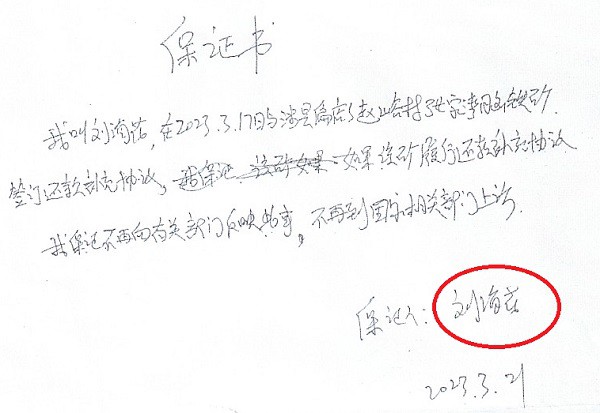 保证书
我叫刘海英,在2023.3.17日与涉县偏店乡赵峪村
签订还款补充协议,我保证 该矿如果 如果该矿履行还款补充协议
我保证不再向有关部门反映此事,不再到国家相关部门上访.
保证人: 刘海英
2023.3.21